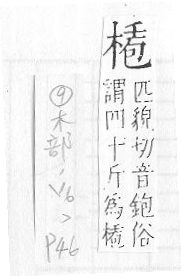 匹貌切音鉋俗
謂四十斤爲
⑨木部、V6>P46